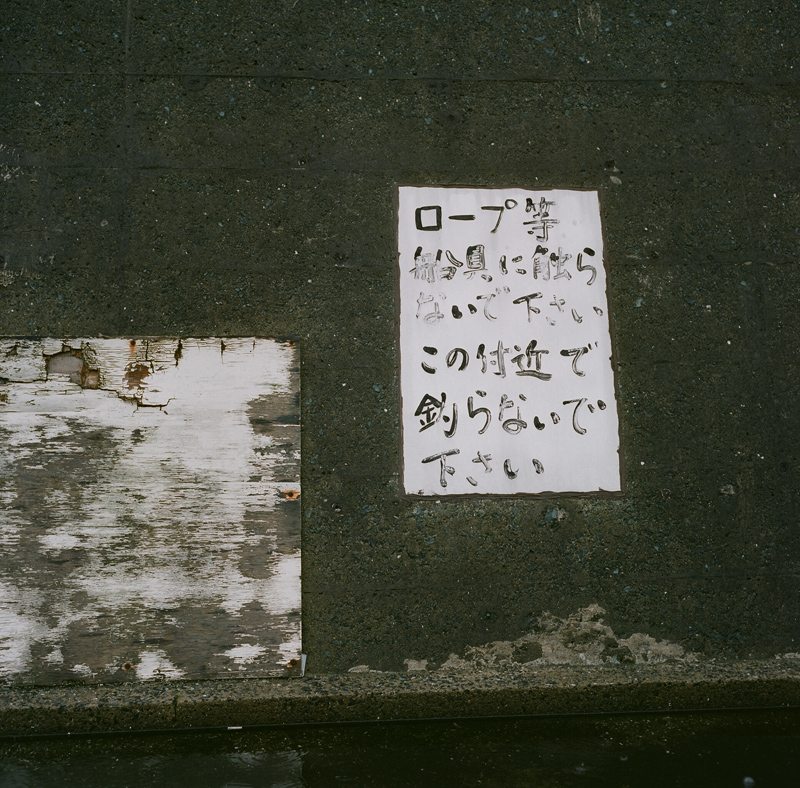 ロープ等
船具に触ら
ないで下さい
この付近で
釣らないで
下さい